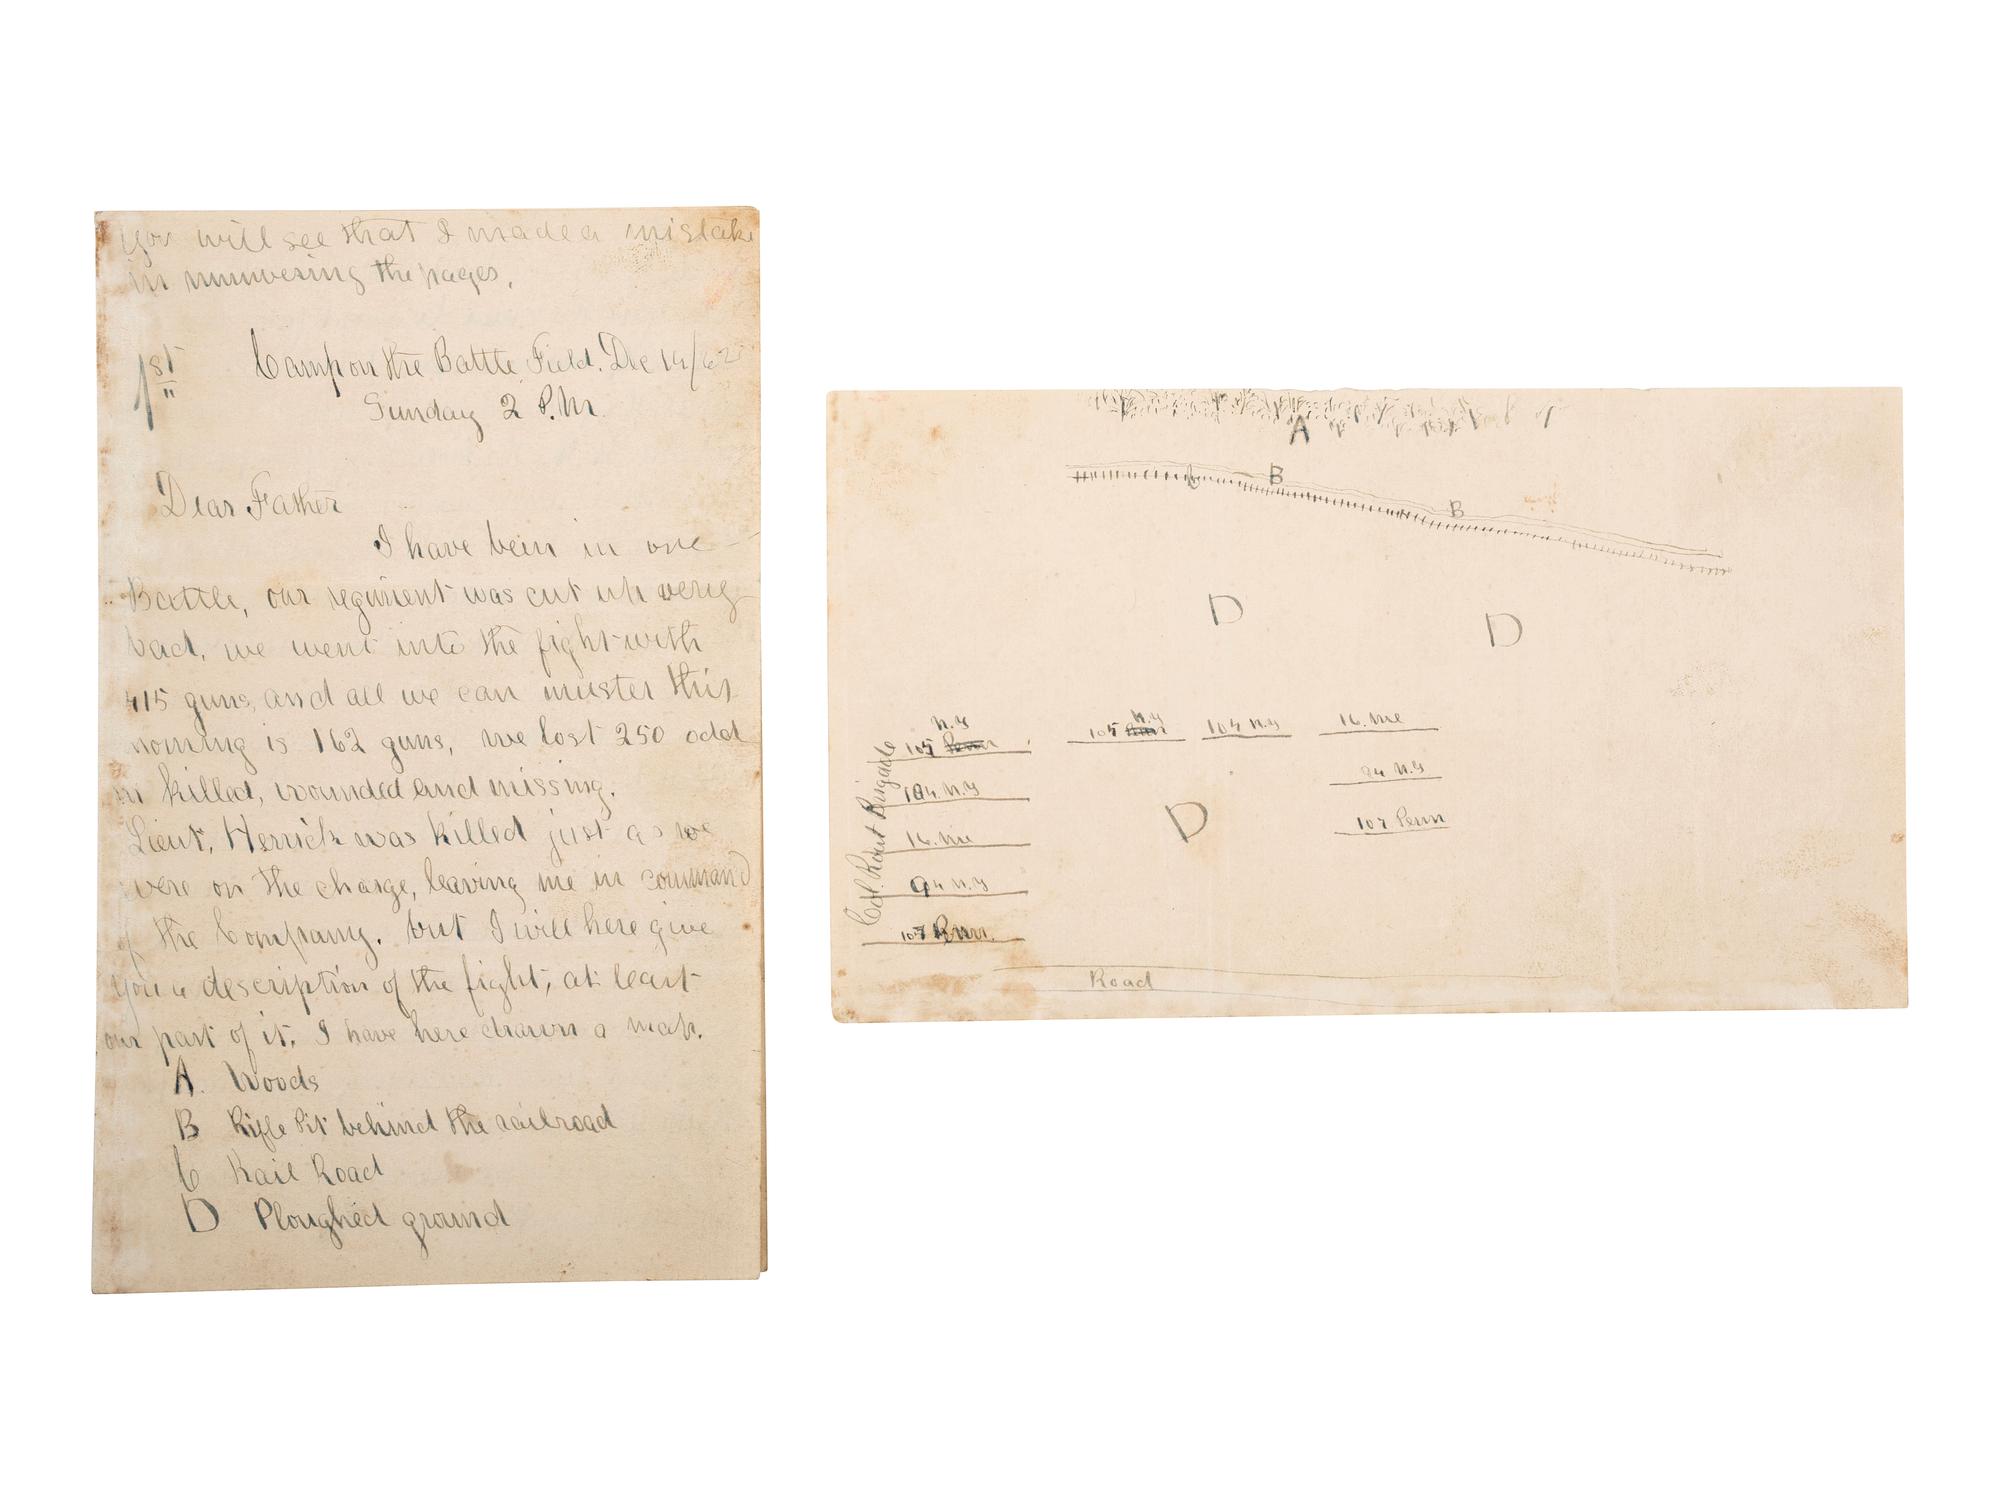 you will see that I made a mistake
in numvering the pages.
1st
Camp on the Battle Field. Dec 14/62
Sunday 2 P.M.
Dear Father
I have bein in one
Battle, our regiment was cut up very
bad, we went into the fight with
415 guns, and all we can muster this
morning is 162 guns, we lost 250 odd
in killed, wounded and missing.
Lieut, Herrick was killed just as we
were on the charge, leaving me in command
of the Company. but I will here give
you a description of the fight, at least
our part of it. I have here drawn a map.
A. Woods
B Rifle Pit behind the railroad
C Rail Road
D Ploughed ground
A
B
B
D
D
N.Y
105 Penn
104 N.Y
16. Me
94 N.Y
107 Penn.
Col. Root Brigade
N.Y
105 Penn
104 N.Y
16. Me
94 N.Y
107 Penn
D
Road